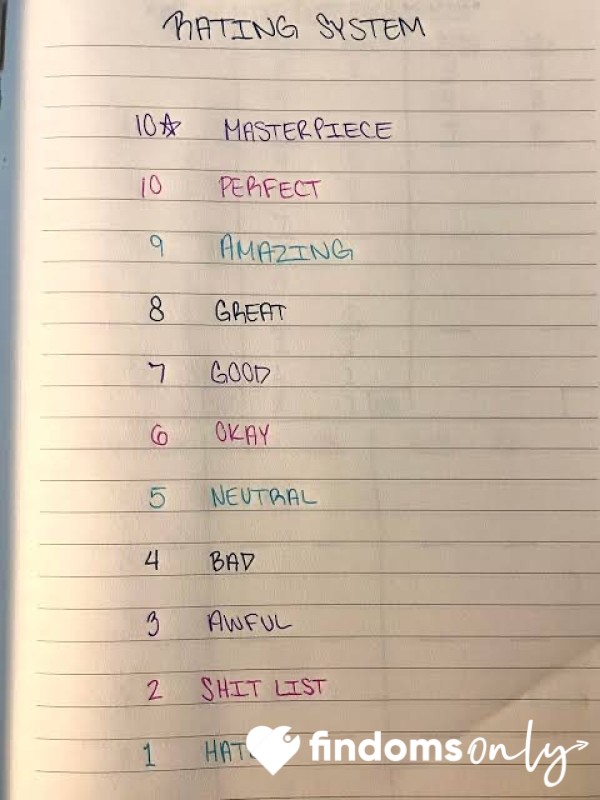 RATING SYSTEM
10☆ MASTERPIECE
10 PERFECT
9 AMAZING
8 GREAT
7 GOOD
6 OKAY
5 NEUTRAL
4 BAD
3 AWFUL
2 SHIT LIST
1
findomsonly